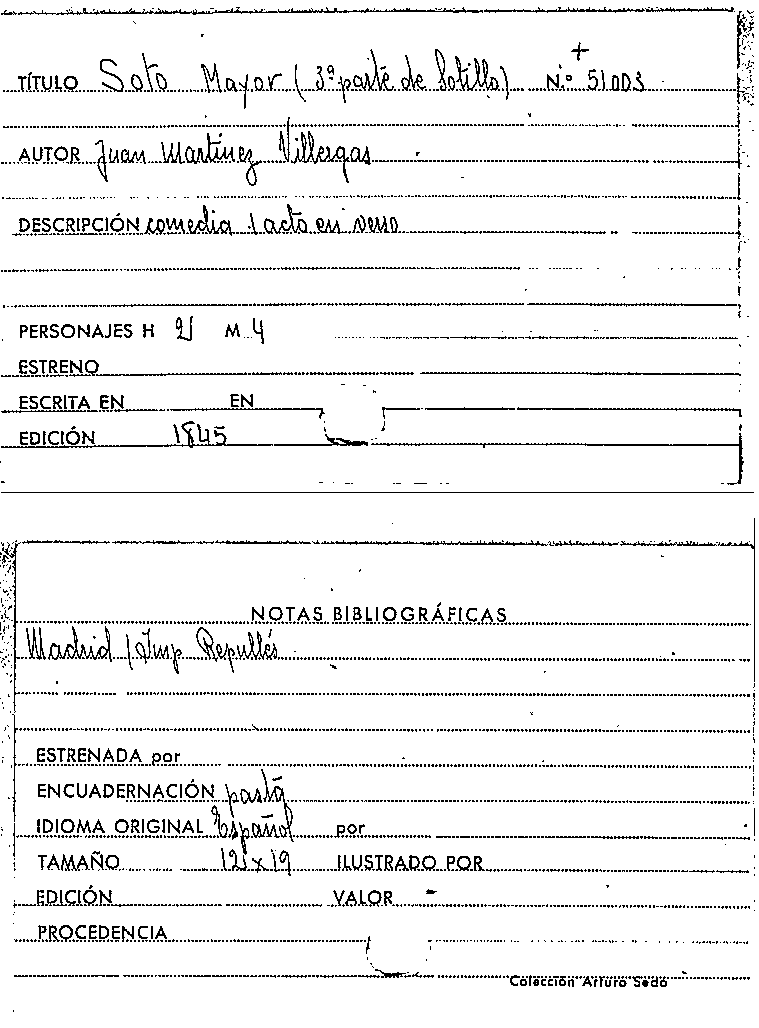 +
TÍTULO Soto Mayor (3ª parte de Sotillo) N.º 51003
AUTOR Juan Martínez Villergas
DESCRIPCIÓN comedia 1 acto en verso
PERSONAJES H 2 M 4
ESTRENO
ESCRITA EN EN
EDICIÓN 1845
NOTAS BIBLIOGRÁFICAS
Madrid / Imp Repullés
ESTRENADA por
ENCUADERNACIÓN pasta
IDIOMA ORIGINAL Español por
TAMAÑO 12 x 19 ILUSTRADO POR
EDICIÓN VALOR -
PROCEDENCIA
Colección Arturo Sedó